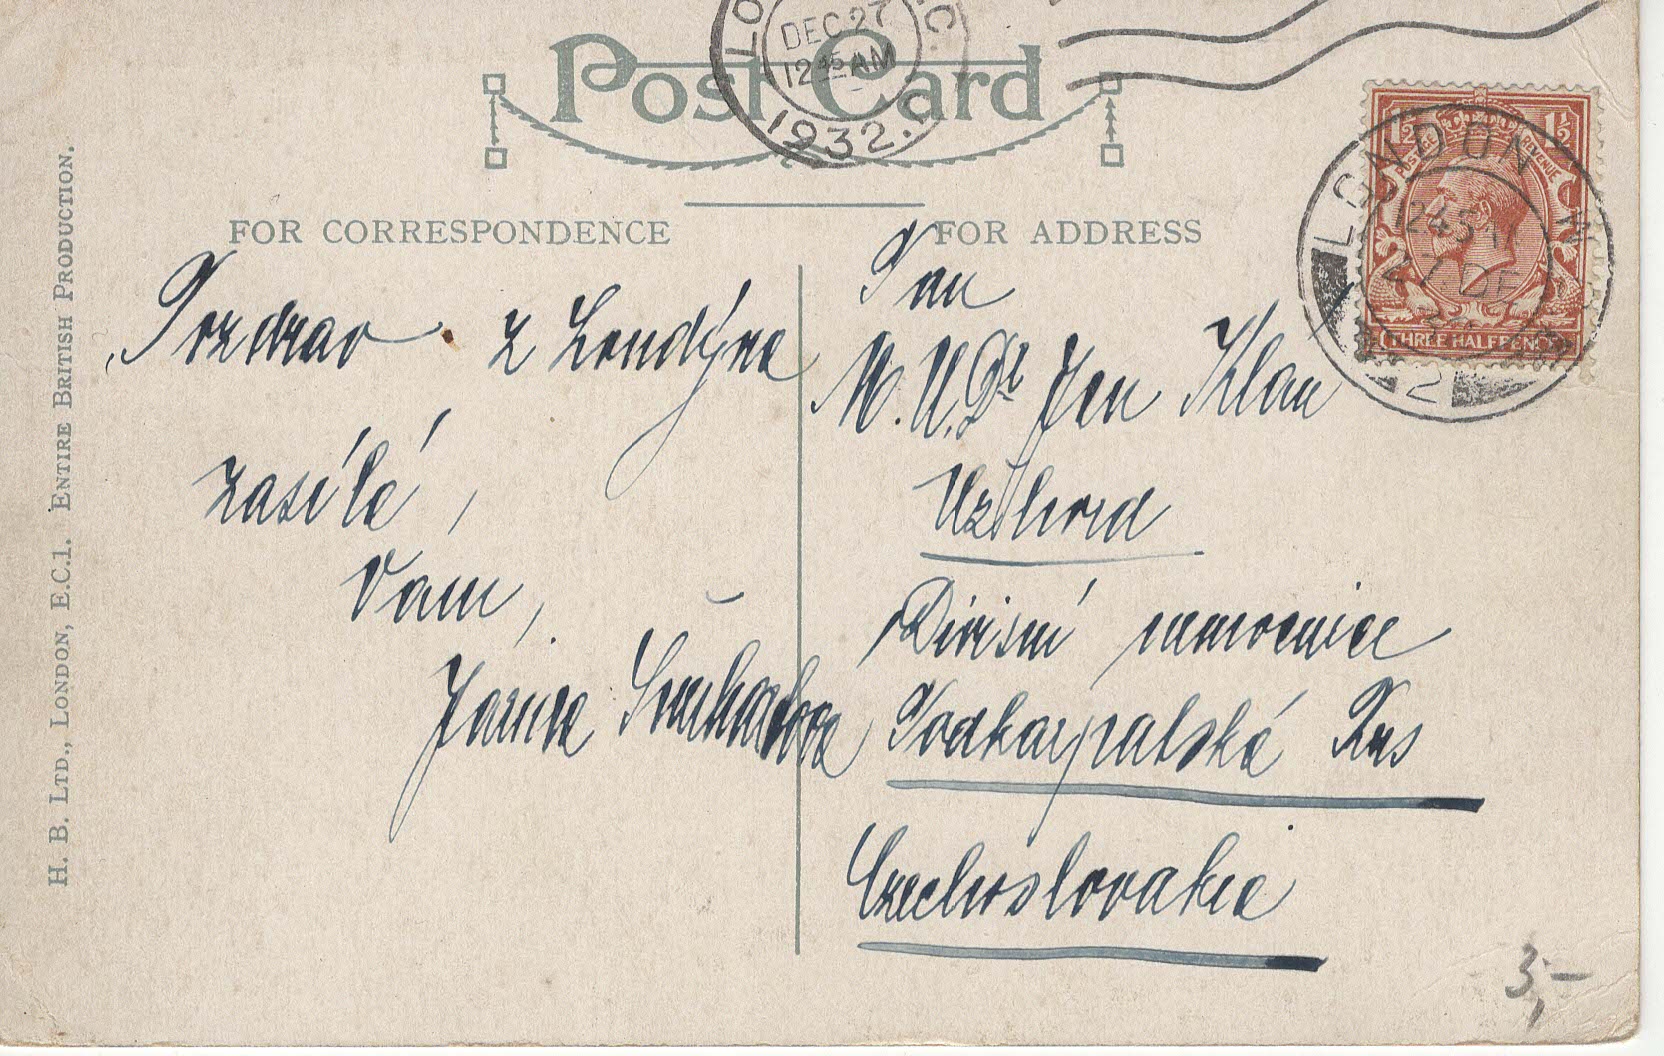 DEC 27
12 45 AM
1932
Post Card
LONDON
1½ POSTAGE REVENUE 1½
1245 AM
27 DE
THREE HALFPENCE
2
FOR CORRESPONDENCE
FOR ADDRESS
H. B. LTD., LONDON, E.C.1. ENTIRE BRITISH PRODUCTION.
Pozdrav z Londýna
zasílá,
Vám,
Pan
M.U.Dr Jan Klan
Užhorod
Divisní nemocnice
Podkarpatská Rus
Czechoslovakia
3,-